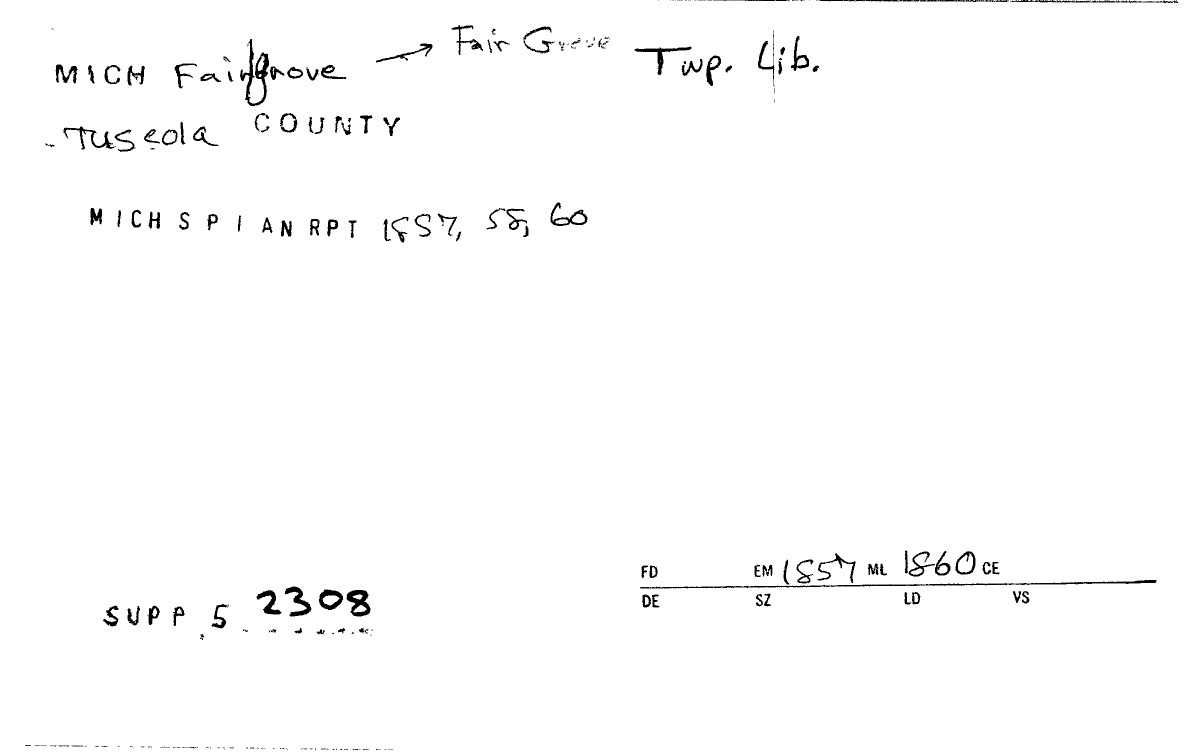 MICH Fairgrove → Fair Grove Twp. Lib.
Tuscola COUNTY
MICH S P I AN RPT 1857, 58, 60
FD EM 1857 ML 1860 CE
DE SZ LD VS
SUPP 5 2308